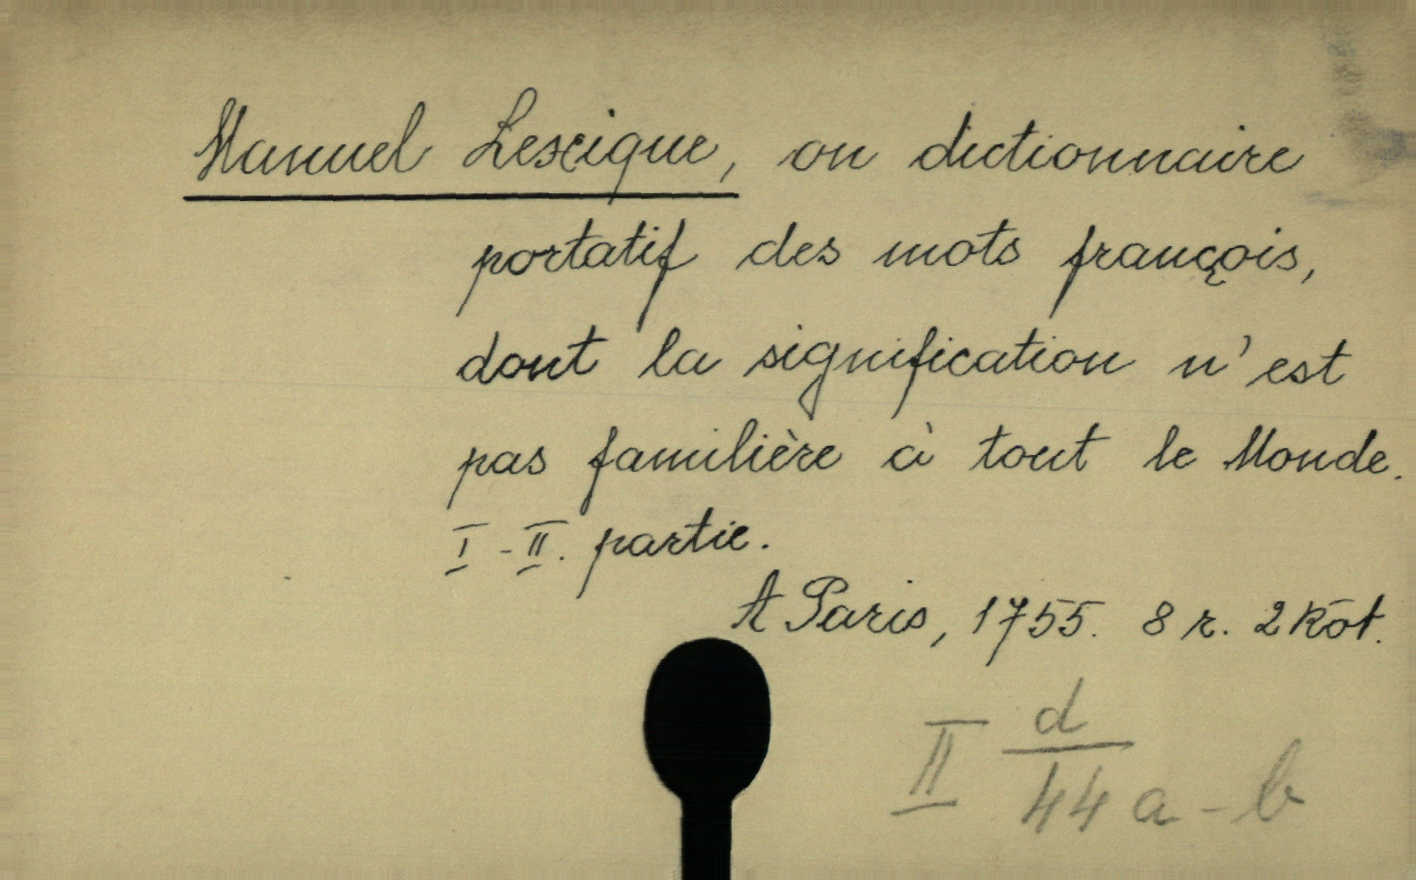 Manuel Lexique, ou dictionnaire
portatif des mots françois,
dont la signification n'est
pas familière à tout le Monde.
I-II. partie.
A Paris, 1755. 8 r. 2 köt.
II d/44 a-b